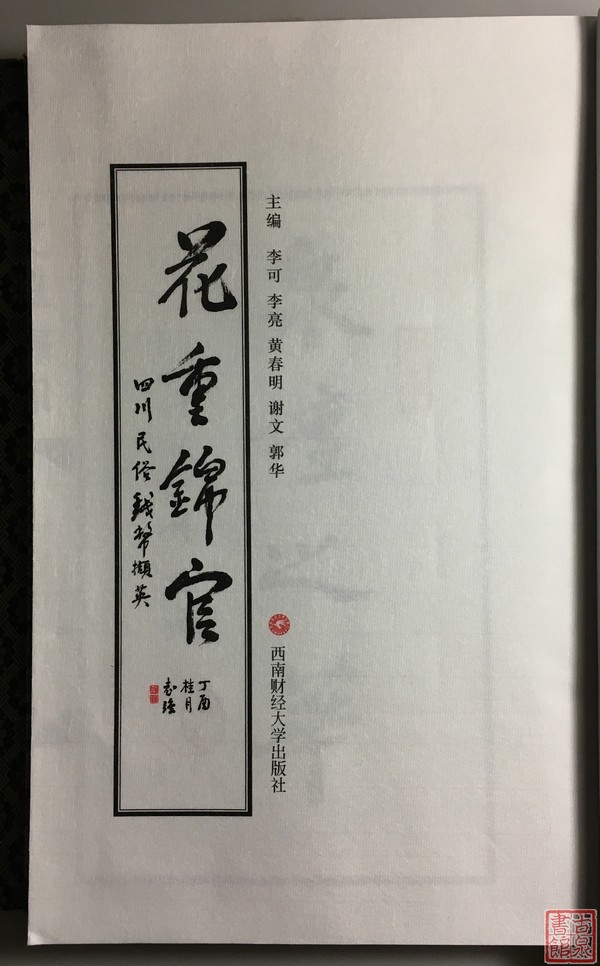 主编 李可 李亮 黄春明 谢文 郭华
西南财经大学出版社
花重錦官
四川民俗錢幣擷英
丁酉
桂月